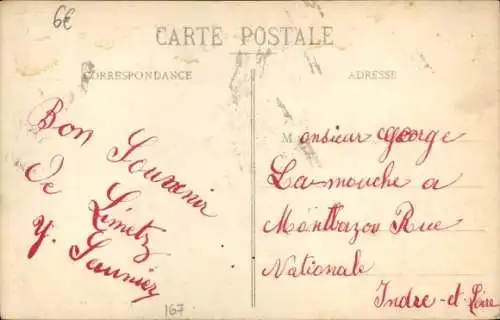 6€
CARTE POSTALE
CORRESPONDANCE
ADRESSE
Bon
Souvenir
De
Limetz
Y. Saunier
Monsieur George
Lamouche a
Montbazon Rue
Nationale
Indre-et-Loire
167